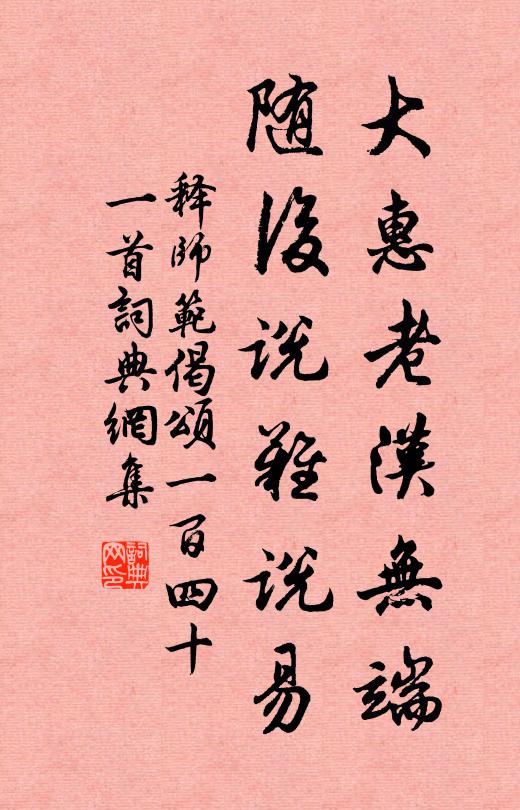 大惠老漢無端
随後说難说易
释師範偈頌一百四十
一首詞典網集
詞典网印